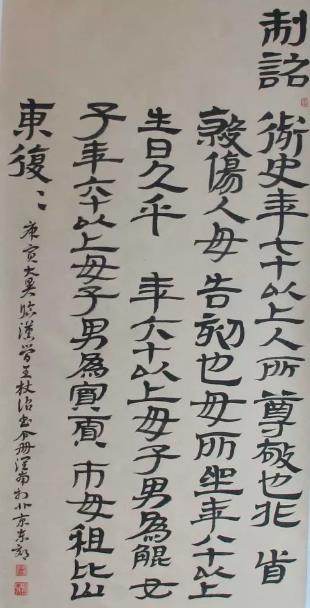 制詔
御史年七十以上人所尊敬也非首
殺傷人毋告劾也毋所坐年八十以上
生日久乎 年六十以上毋子男為鯤女
子年六十以上毋子男為寡賈市毋租比山
東復〻
庚寅大昊臨漢王杖詔書令册於北京東郊